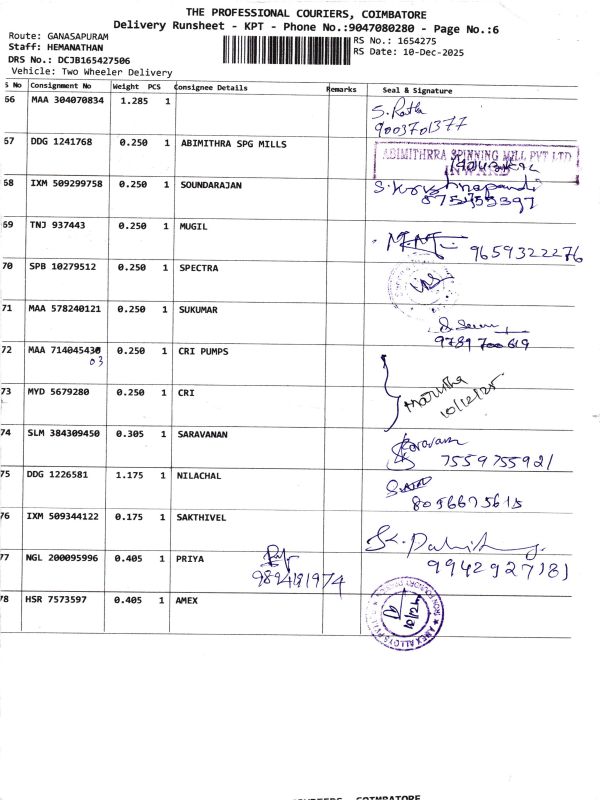 THE PROFESSIONAL COURIERS, COIMBATORE
Delivery Runsheet - KPT - Phone No.:9047080280 - Page No.:6
Route: GANASAPURAM
RS No.: 1654275
Staff: HEMANATHAN
RS Date: 10-Dec-2025
DRS No.: DCJB165427506
Vehicle: Two Wheeler Delivery
S No Consignment No Weight PCS Consignee Details Remarks Seal & Signature
66 MAA 304070834 1.285 1
9003701377
67 DDG 1241768 0.250 1 ABIMITHRA SPG MILLS
ABIMITHRRA SPINNING MILL PVT LTD
68 IXM 509299758 0.250 1 SOUNDARAJAN
69 TNJ 937443 0.250 1 MUGIL
9659322276
70 SPB 10279512 0.250 1 SPECTRA
71 MAA 578240121 0.250 1 SUKUMAR
9789700619
72 MAA 714045430 0.250 1 CRI PUMPS
03
73 MYD 5679280 0.250 1 CRI
10/12/25
74 SLM 384309450 0.305 1 SARAVANAN
7559755921
75 DDG 1226581 1.175 1 NILACHAL
8056675615
76 IXM 509344122 0.175 1 SAKTHIVEL
9942927181
77 NGL 200095996 0.405 1 PRIYA
9894191974
78 HSR 7573597 0.405 1 AMEX